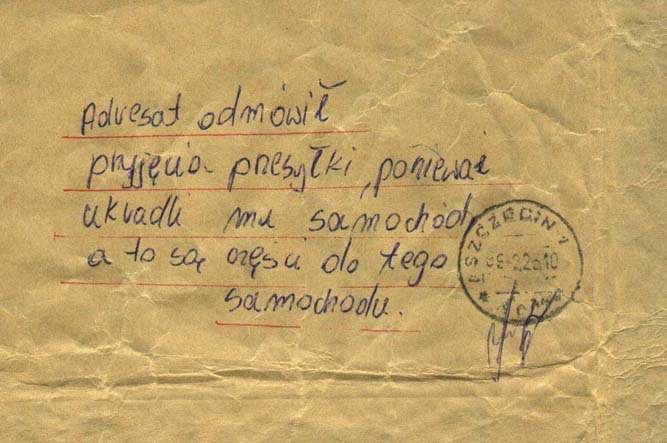 Adresat odmówił
przyjęcia przesyłki, ponieważ
ukradli mu samochód,
a to są części do tego
samochodu.
SZCZECIN 1